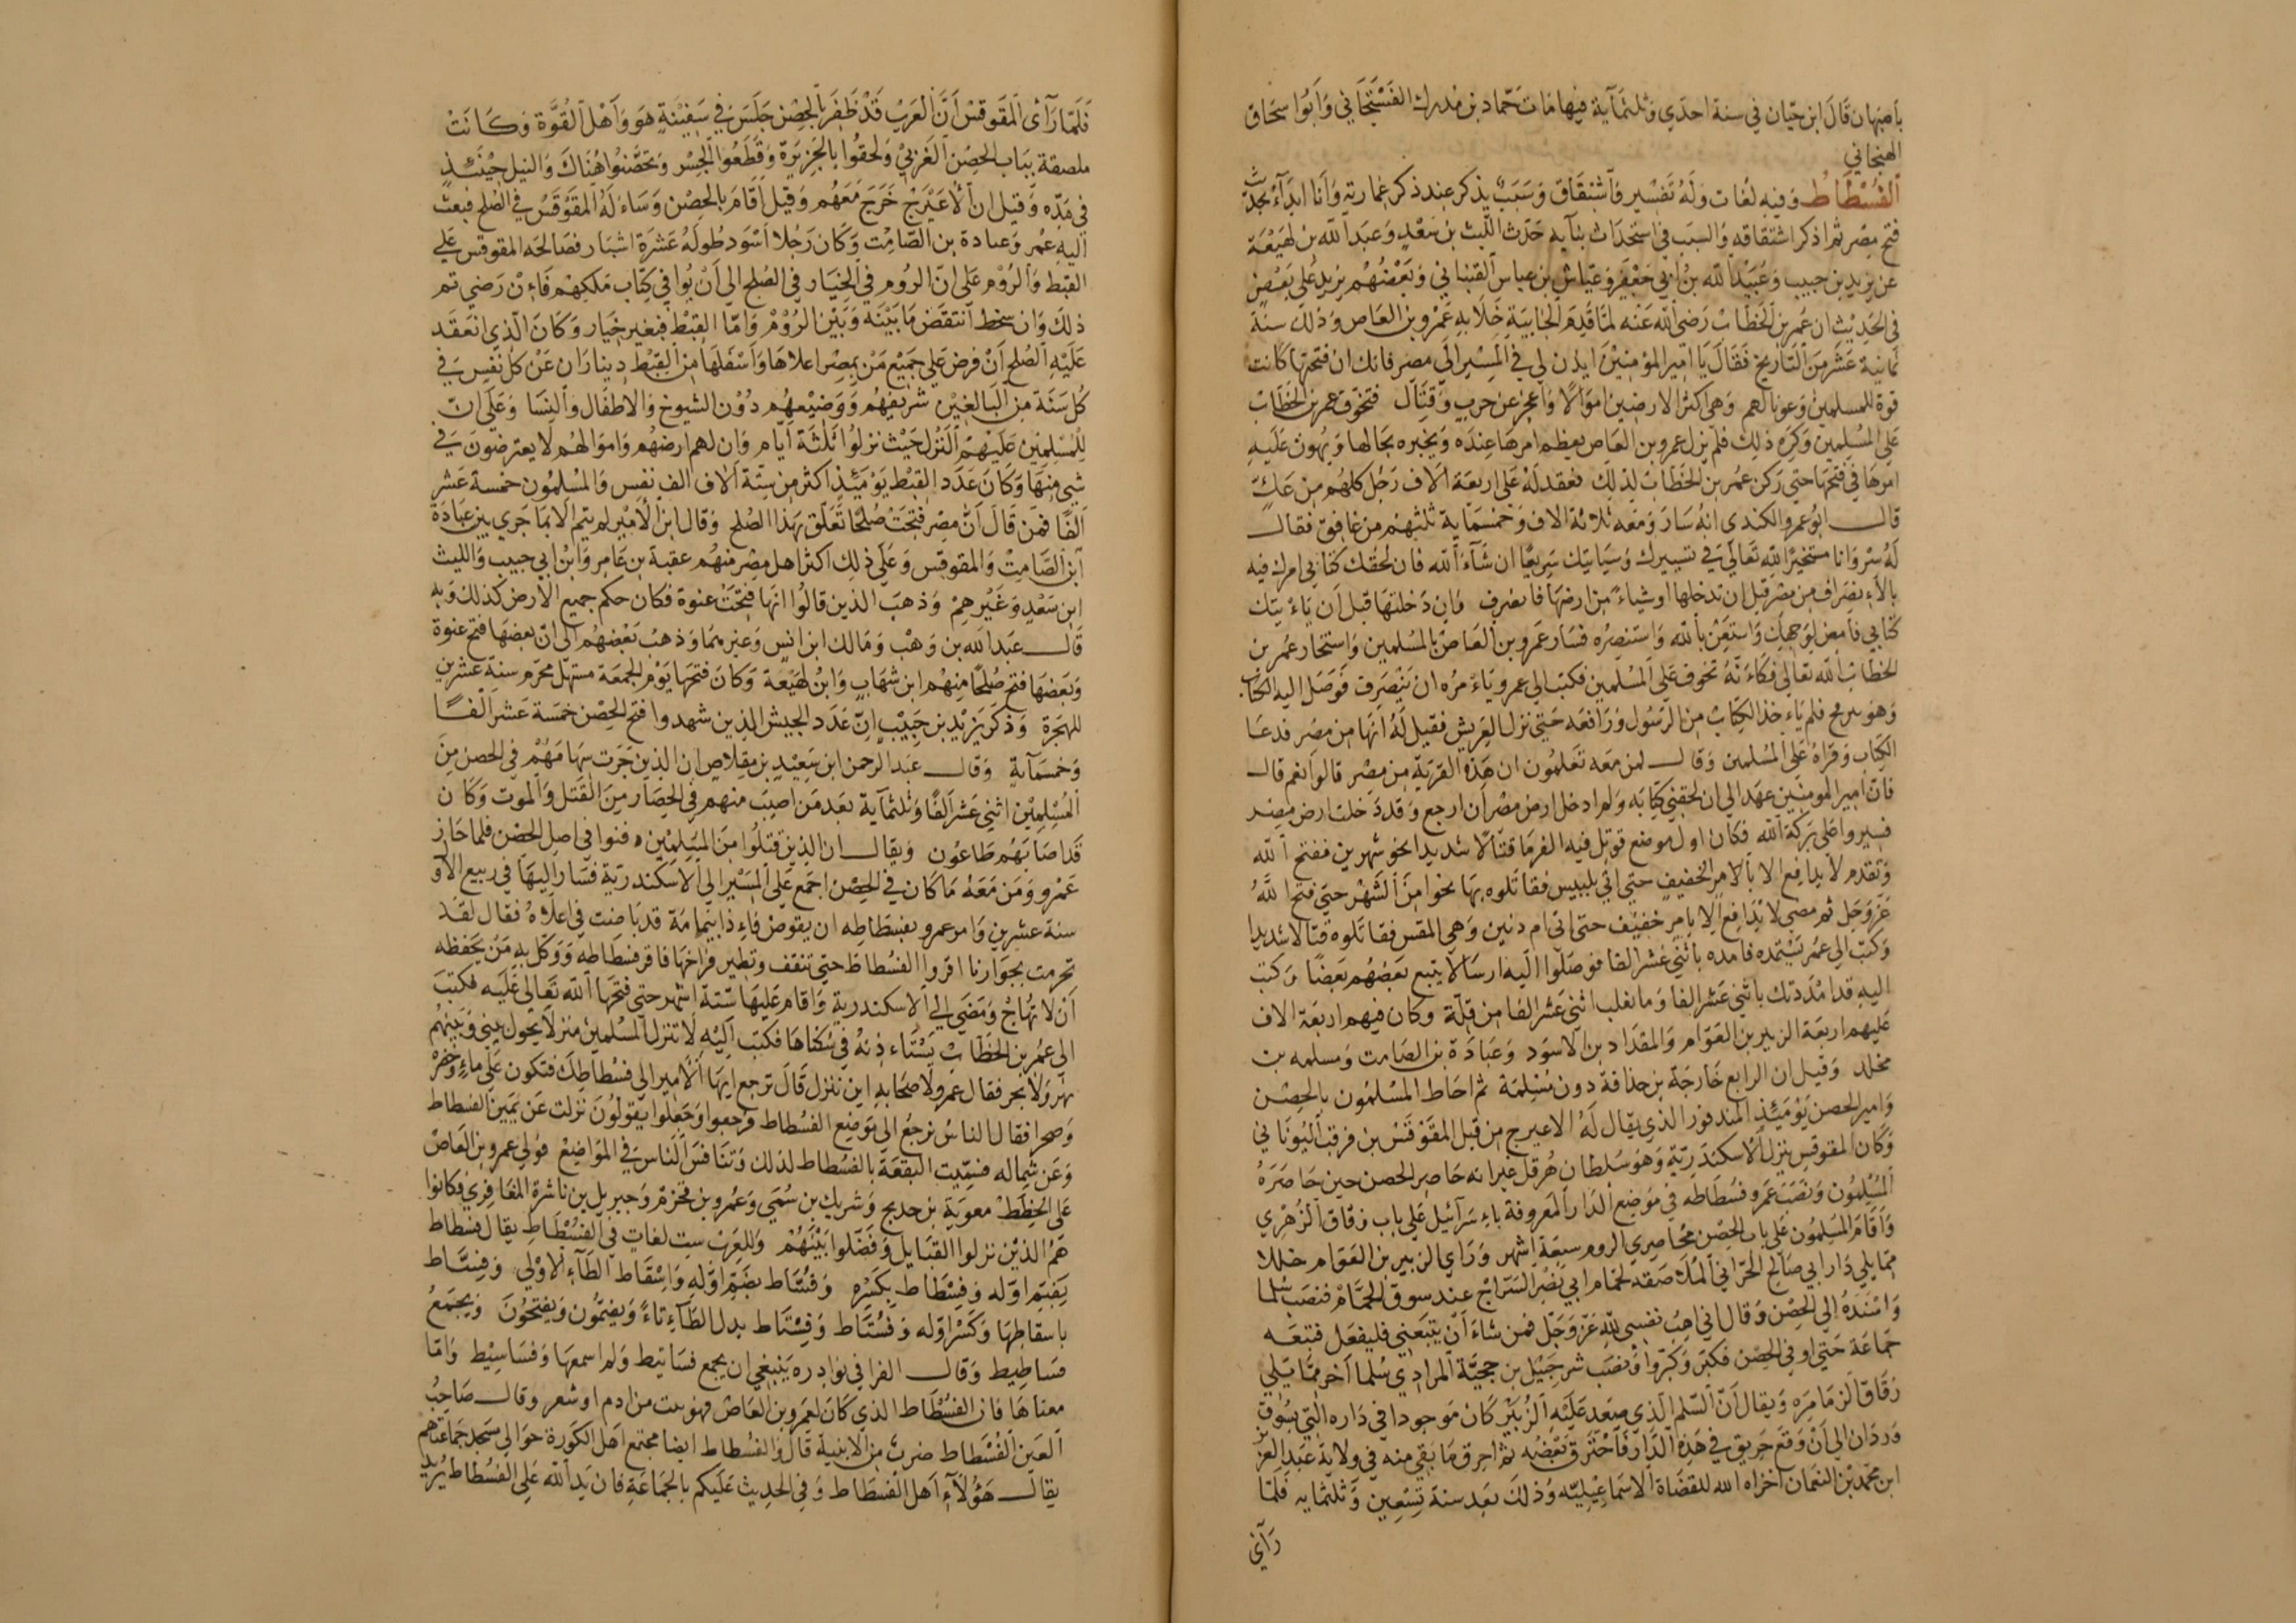 باصبهان قال ابن حيان في سنة احدي وثلثمآية فيها مات حماد بن مدرك الفستجاني وابوا سحاق
الهنجاني
الفسطاط وفيه لغات وله تفسير واشتقاق وسبب يذكر عند ذكر عمارته وانا ابدآء بحديث
فتح مصر ثم اذكر اشتقاقه والسبب في استحداث بنآيه حدث الليث بن سعد وعبد الله بن لهيعة
عن يزيد بن حبيب وعبيد الله بن ابي جعفر وعياش بن عباس القتباني وبعضهم يزيد على بعض
في الحديث ان عمر بن الخطاب رضي الله عنه لما قدم الجابية خلا به عمرو بن العاص وذلك سنة
ثمانية عشر من التاريخ فقال يا امير المؤمنين ايذن لي في المسير الى مصر فانك ان فتحتها كانت
قوة للمسلمين وعونا لهم وهي اكثر الارضين اموالا واعجز عن حرب وقتال فتخوف عمر بن الخطاب
على المسلمين وكره ذلك فلم يزل عمرو بن العاص يعظم امرها عنده ويخبره بحالها ويهون عليه
امرها في فتحها حتي ركن عمر بن الخطاب لذلك فعقد له على اربعة الاف رجل كلهم من عك
قال ابو عمر والكندي انه سار ومعه ثلاثة الاف وخمسماية ثلثهم من غافق فقال
له سر وانا مستخير الله تعالي في تسييرك وسياتيك سريعا ان شآء الله فان لحقك كتابي امرك فيه
بالاءنصراف من مصر قبل ان تدخلها او شياء من ارضها فانصرف وان دخلتها قبل ان ياءتيك
كتابي فامض لوجهك واستعن بالله واستنصره فسار عمرو بن العاص بالمسلمين واستخار عمر بن
الخطاب الله تعالي فكاءنه تخوف على المسلمين فكتب الي عمرو ياءمره ان ينصرف فوصل اليه الكتاب
وهو برمح فلم ياءخذ الكتاب من الرسول ورافعه حتي نزل العريش فقيل له انها من مصر فدعا
الكتاب وقراه على المسلمين وقال لمن معه تعلمون ان هذه القرية من مصر قالوا نعم قال
فان امير المومنين عهد الي ان لحقني كتابه ولم ادخل ارض مصر ان ارجع وقد دخلت ارض مصر
فسيروا على بركة الله فكان اول موضع قوتل فيه الفرما قتالا شديدا نحو شهرين ففتح الله
وتقدم لا يدافع الا بالامر الخفيف حتي اتي بلبيس فقاتلوه بها نحوا من الشهر حتي فتح الله
عز وجل ثم مضي لا يدافع الا بامر خفيف حتى اتي ام دنين وهي المقس فقاتلوه قتالا شديدا
وكتب الي عمر يستمده فامده باثني عشر الفا فوصلوا اليه ارسالا يتبع بعضهم بعضا وكتب
اليه قد امددتك باثني عشر الفا وما يغلب اثني عشر الفا من قلة وكان فيهم اربعة الاف
عليهم اربعة الزبير بن العوام والمقداد بن الاسود وعبادة بن الصامت ومسلمه بن
مخلد وقيل ان الرابع خارجة بن حذافة دون مسلمة ثم احاط المسلمون بالحصن
وامير الحصن يومئذ المندفور الذي يقال له الاعيرج من قبل المقوقس بن قرقب اليوناني
وكان المقوقس ينزل الاسكندرية وهو سلطان هرقل غير انه حاصر الحصن حين حاصره
المسلمون ونصب عمرو فسطاطه في موضع الدار المعروفة باءسرآئيل على باب زقاق الزهري
واقام المسلمون على باب الحصن محاصري الروم سبعة اشهر وراي الزبير بن العوام خللا
مما يلي دار ابي صالح الحراني الملاصقة لحمام ابي نصر السراج عند سوق الحمام فنصب سلما
واسنده الي الحصن وقال اني اهب نفسي لله عز وجل فمن شاء ان يتبعني فليفعل فتبعه
جماعة حتي اوفي الحصن فكبر وكبروا ونصب شرحبيل بن حجية المرادي سلما آخر مما يلي
زقاق الزمامره ويقال ان السلم الذي صعد عليه الزبير كان موجودا في داره التي بسوق
وردان الي ان وقع حريق في هذه الدار فاحترق بعضه ثم احرق ما بقي منه في ولاية عبد العزيز
ابن محمد بن النعمان اخزاه الله للقضاة الاسماعيليه وذلك بعد سنة تسعين وثلثمايه فلما
رآى
فلما رآى المقوقس ان العرب قد ظفر بالحصن جلس في سفينة هو واهل القوة وكانت
ملصقة بباب الحصن الغربي ولحقوا بالجزيرة وقطعوا الجسر وتحصنوا هناك والنيل حينئذ
في مده وقيل ان الاعيرج خرج معهم وقيل اقام بالحصن وساءله المقوقس في الصلح فبعث
اليه عمر وعبادة بن الصامت وكان رجلا اسود طوله عشرة اشبار فصالحه المقوقس علي
القبط والروم على ان الروم في الخيار في الصلح الي ان يوافي كتاب ملكهم فاءن رضي تم
ذلك وان سخط انتقض ما بينه وبين الروم واما القبط فبغير خيار وكان الذي انعقد
عليه الصلح ان فرض على جميع من بمصر اعلاها واسفلها من القبط ديناران عن كل نفس في
كل سنة من البالغين شريفهم ووضيعهم دون الشيوخ والاطفال والنسا وعلى ان
للمسلمين عليهم النزل حيث نزلوا ثلثة ايام وان لهم ارضهم واموالهم لا يعترضون في
شي منها وكان عدد القبط يومئذ اكثر من ستة الاف الف نفس والمسلمون خمسة عشر
الفا فمن قال ان مصر فتحت صلحا تعلق بهذا الصلح وقال ابن الامير لم يتم الا بما جري بين عبادة
ابن الصامت والمقوقس وعلى ذلك اكثر اهل مصر منهم عقبة بن عامر وابن ابي حبيب والليث
ابن سعد وغيرهم وذهب الذين قالوا انها فتحت عنوة فكان حكم جميع الارض كذلك وبه
قال عبد الله بن وهب ومالك ابن انس وغيرهما وذهب بعضهم الى ان بعضها فتح عنوة
وبعضها فتح صلحا منهم ابن شهاب وابن لهيعة وكان فتحها يوم الجمعة مستهل محرم سنة عشرين
للهجرة وذكر يزيد بن حبيب ان عدد الجيش الذين شهدوا فتح الحصن خمسة عشر الفا
وخمسمآية وقال عبد الرحمن ابن سعيد بن مقلاص ان الذين جرت سهامهم في الحصن من
المسلمين اثني عشر الفا وثلثمآية بعد من اصيب منهم في الحصار من القتل والموت وكان
قد اصابهم طاعون ويقال ان الذين قتلوا من المسلمين دفنوا في اصل الحصن فلما حاز
عمرو ومن معه ما كان في الحصن اجمع على المسير الي الاسكندرية فسار اليها في ربيع الاو
سنة عشرين وامر عمرو بفسطاطه ان يقوض فاءذا بيمامة قد باضت في اعلاه فقال لقد
تحرمت بجوارنا اقروا الفسطاط حتي تنقف وتطير فراخها فاقر فسطاطه ووكل به من يحفظه
ان لا تهاج ومضي الي الاسكندرية واقام عليها ستة اشهر حتي فتحها الله تعالى عليه فكتب
الى عمر بن الخطاب يستاءذنه في سكناها فكتب اليه لا تنزل المسلمين منزلا يحول بيني وبينهم
نهر ولا بحر فقال عمرو لاصحابه اين ننزل قال ترجع ايها الامير الي فسطاطك فتكون على ماء
وصحرا فقال الناس نرجع الي موضع الفسطاط فرجعوا وجعلوا يقولون نزلت عن يمين الفسطاط
وعن شماله فسميت البقعة بالفسطاط لذلك وتنافس الناس في المواضع فولي عمرو بن العاص
على الخطط معوية بن حديج وشريك بن سمي وعمرو بن قحزم وجبريل بن ناشرة المعافري فكانوا
هم الذين نزلوا القبايل وفضلوا بينهم وللعرب ست لغات في الفسطاط يقال فسطاط
بفتح اوله وفسطاط بكسره وفساط بضم اوله واسقاط الطآء الاولي وفساط
باسقاطها وكسر اوله وفستاط وفستاط بدل الطآء تاء ويضمون ويفتحون ويجمع
فساطيط وقال الفرا في نوادره ينبغي ان يجمع فساتيط ولم اسمعها وفساسيط واما
معناها فان الفسطاط الذي كان لعمرو بن العاص فهو بيت من ادم او شعر وقال صاحب
العين الفسطاط ضرب من الابنية قال والفسطاط ايضا مجتمع اهل الكورة حوالي مسجد جماعتهم
يقال هؤلآء اهل الفسطاط وفي الحديث عليكم بالجماعة فان يد الله على الفسطاط يريد